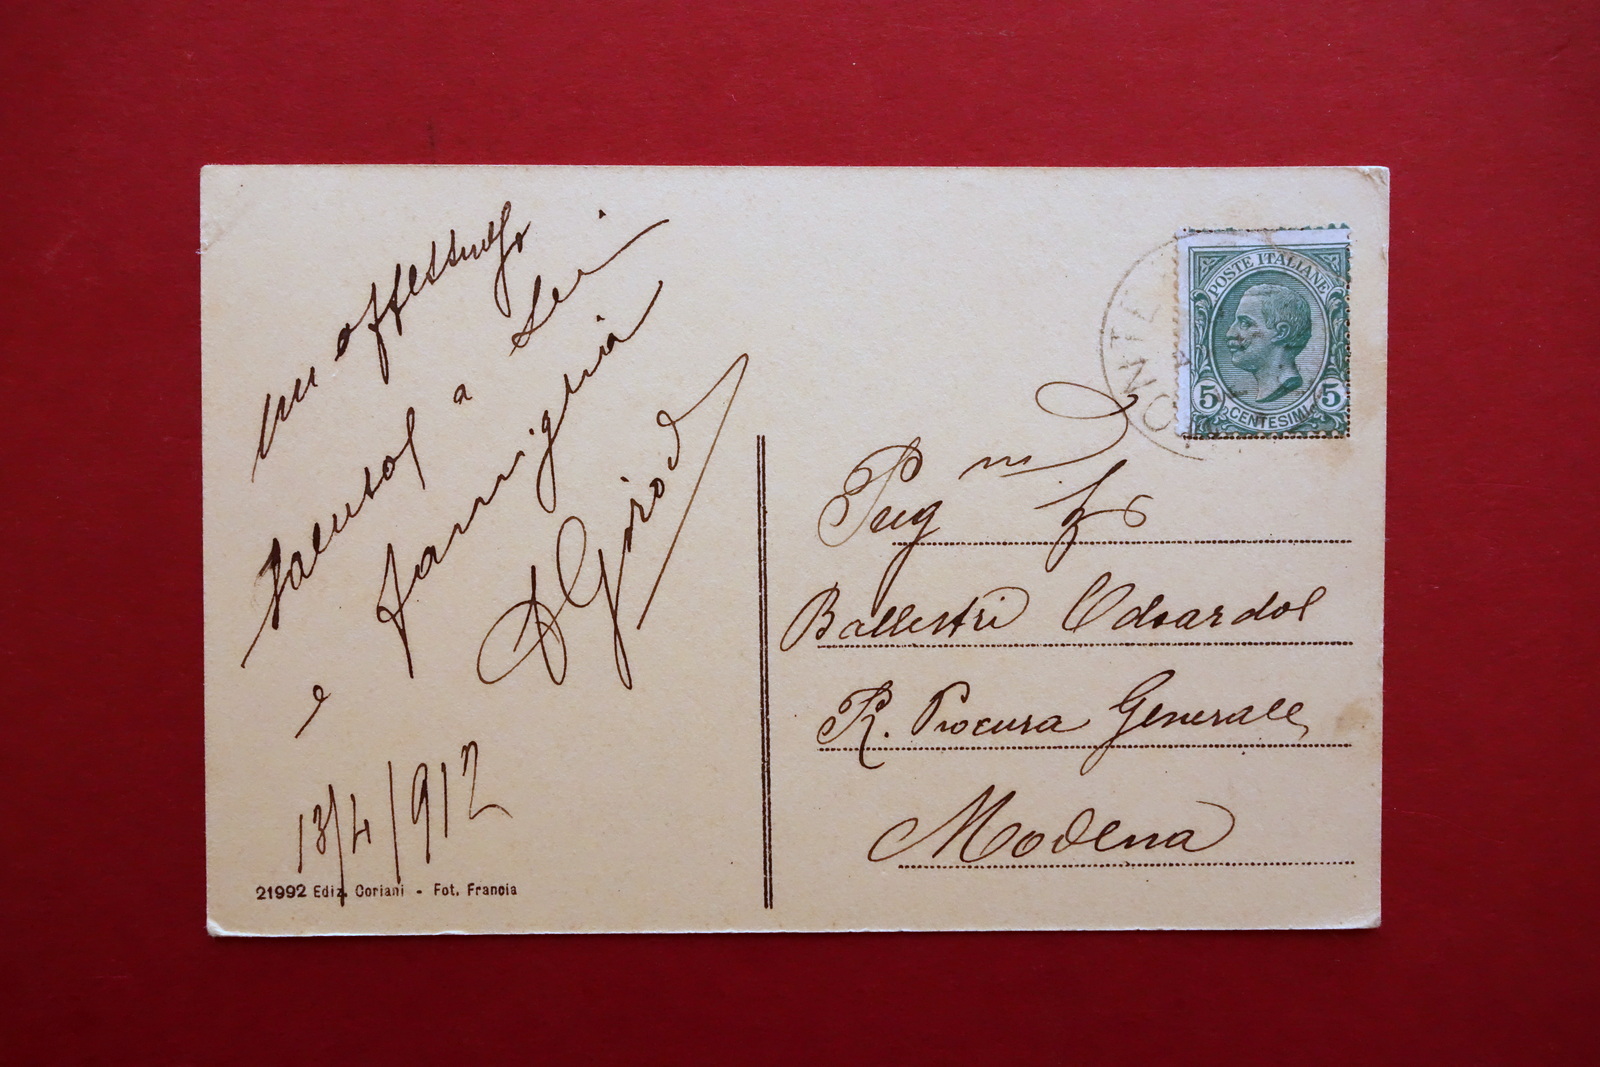 un affettuoso
saluto a Lei
e famiglia
A Girod
13/4/912
21992 Ediz. Coriani - Fot. Francia
POSTE ITALIANE
5 CENTESIMI 5
Ballestri Edoardo
R. Procura Generale
Modena